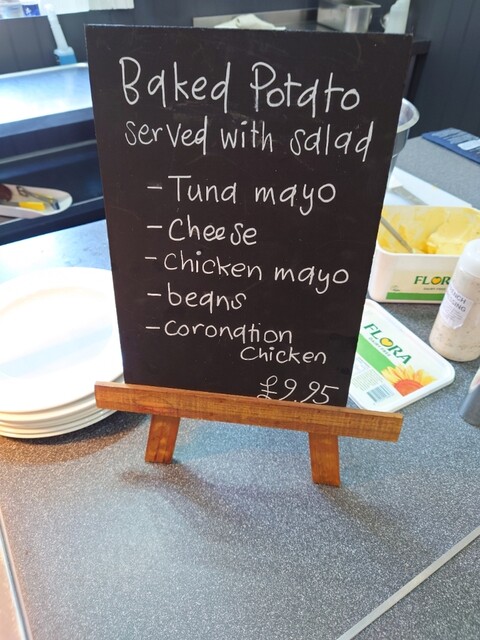 Baked Potato
served with salad
- Tuna mayo
- Cheese
- Chicken mayo
- beans
- coronation
Chicken
£9.95
FLORA
FLORA